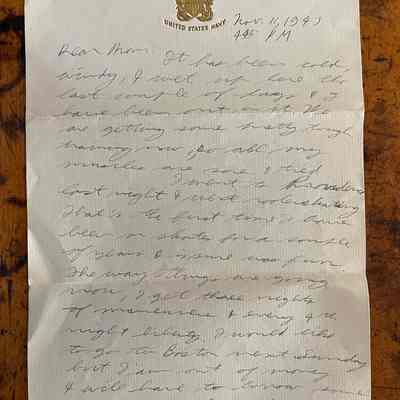 UNITED STATES NAVY
Nov. 11, 194
445 PM
Dear Mom, It has been cold,
windy, & wet up here the
last couple of days & I
have been out in it. We
are getting some pretty tough
training now, so all my
muscles are sore & tired
I went to Providence
last night & went rollerskating
That's the first time I have
been on skates for a couple
of years & sure was fun.
The way things are going
now, I get three nights
of maneuvers & every 4th
night liberty. I would like
to go to Boston next Sunday
but I am out of money
& will have to borrow some